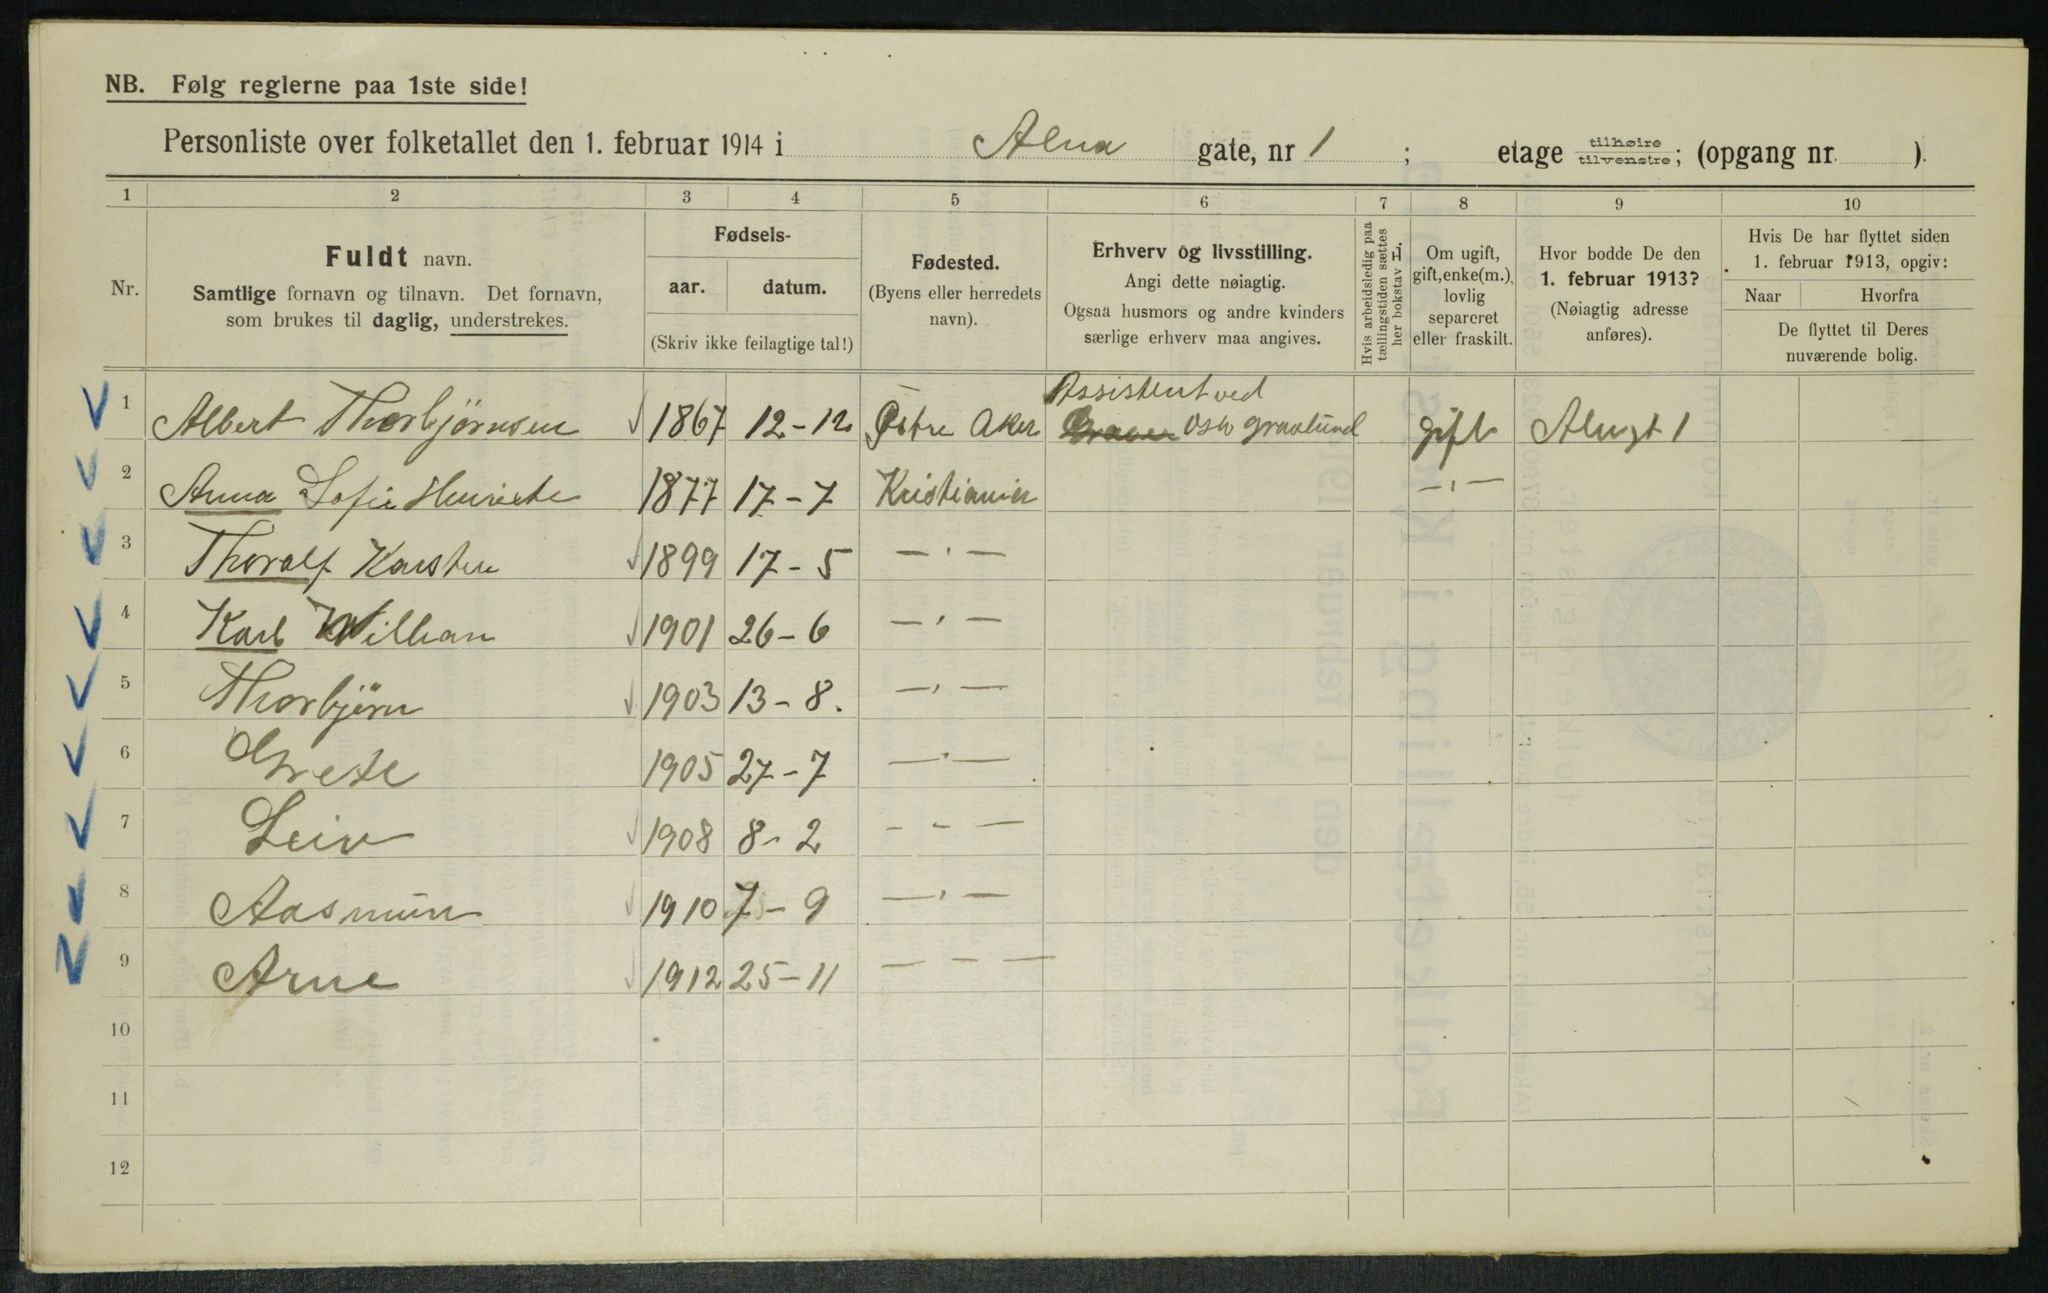 NB. Følg reglerne paa 1ste side!
Personliste over folketallet den 1. februar 1914 i Alna gate, nr 1 ; etage tilhøire tilvenstre; (opgang nr. ).
1 2 3 4 5 6 7 8 9 10
Nr.
Fuldt navn.
Samtlige fornavn og tilnavn. Det fornavn,
som brukes til daglig, understrekes.
Fødsels-
aar. datum.
(Skriv ikke feilagtige tal!)
Fødested.
(Byens eller herredets
navn).
Erhverv og livsstilling.
Angi dette nøiagtig.
Ogsaa husmors og andre kvinders
særlige erhverv maa angives.
Hvis arbeidsledig paa
tællingstiden sættes
her bokstav L.
Om ugift,
gift, enke(m.),
lovlig
separeret
eller fraskilt.
Hvor bodde De den
1. februar 1913?
(Nøiagtig adresse
anføres).
Hvis De har flyttet siden
1. februar 1913, opgiv:
Naar Hvorfra
De flyttet til Deres
nuværende bolig.
Assistent ved
1 Albert Thorbjørnsen 1867 12-12 Østre Aker Graver Oslo gravlund gift Alnagt 1
2 Anna Sofie Henriete 1877 17-7 Kristiania —„—
3 Thoralf Karsten 1899 17-5 —„—
4 Karl Willian 1901 26-6 —„—
5 Thorbjørn 1903 13-8. —„—
6 Grete 1905 27-7 —„—
7 Leiv 1908 8-2 - - —
8 Aasmun 1910 7-9 —„—
9 Arne 1912 25-11 — — —
10
11
12